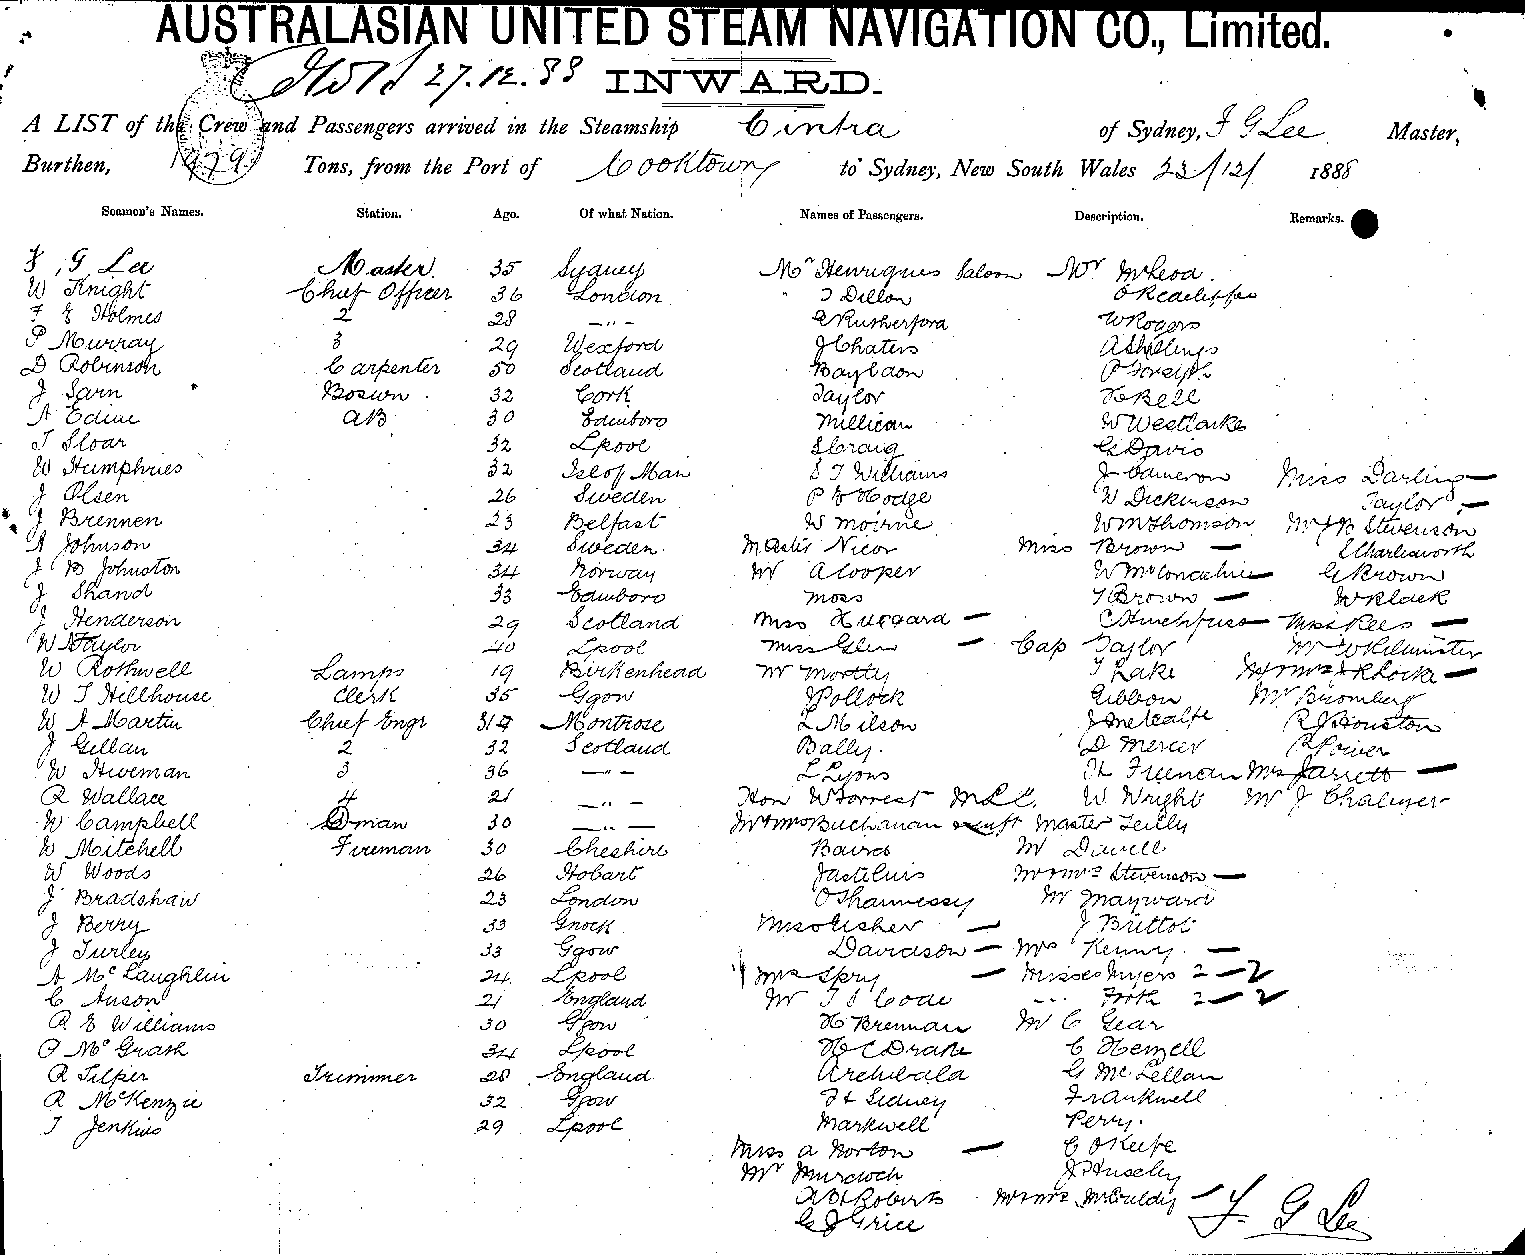 AUSTRALASIAN UNITED STEAM NAVIGATION CO., Limited.
27.12.88 INWARD.
A LIST of the Crew and Passengers arrived in the Steamship Cintra of Sydney, F G Lee Master,
Burthen, 1979 Tons, from the Port of Cooktown to Sydney, New South Wales 23/12/ 1888
Seamen's Names. Station. Age. Of what Nation. Names of Passengers. Description. Remarks.
F, G, Lee Master 35 Sydney Mr Henriques Saloon Mr McLeod
W Knight Chief Officer 36 London " T Dillon O Radcliffe
F G Holmes 2 28 —"— Rutherford W Rogers
P Murray 3 29 Wexford J Chaters A Shillings
D Robinson Carpenter 50 Scotland Bayldon P Forsyth
J Sarn Boswn 32 Cork Taylor H Bell
A Edine AB 30 Edinboro Millican W Westlake
T Sloar 32 Lpool S Craig G Davis
W Humphries 32 Isle of Man S T Williams J Cameron Miss Darling —
J Olsen 26 Sweden P Hodge W Dickinson Taylor —
J Brennen 23 Belfast W Moirne W M Thomson Mr J B Stevenson
A Johnson 34 Sweden Master Nicor Miss Brown — Charlesworth
J B Johnston 34 Norway Mr A Cooper W G Brown
J Shand 33 Edinboro Moss T Brown — W Black
J Henderson 29 Scotland Miss Huggard — Miss Rees —
W Taylor 40 Lpool Miss Glen — Cap Taylor Mr W Kilminster
W Rothwell Lamps 19 Birkenhead Mr Mostly T Lake Mr & Mrs J R Locke —
W T Hillhouse Clerk 35 Ggow J Pollock Gibbon Mr Bromberg
W A Martin Chief Engr 34 Montrose L Milson J Metcalfe R J Houston
J Gillan 2 32 Scotland Bally. D Mercer R Power
W Hweman 3 36 —"— L Lyons H Freeman Mrs Jarrett —
R Wallace 4 21 —"— Hon W Forrest MLC. W Wright Mr J Chalmer
W Campbell Dman 30 —"— Mr & Mrs Buchanan Master Leilly
W Mitchell Fireman 30 Cheshire Baird Mr Davell
W Woods 26 Hobart Mr & Mrs Stevenson —
J Bradshaw 23 London O'Shannessy Mr Mayward
J Berry 33 Gnock Miss Usher — J Buttol
J Turley 33 Ggow Davidson — Mrs Kenny —
A McLaughlin 24 Lpool Mrs Spry — Misses Myers 2 — 2
C Anson 21 England Mr T S Code " Frith 2 — 2
R E Williams 30 Ggow H Brennan Mr C Gear
P McGrath 34 Lpool H C Drake C Henzell
R Tilper Trimmer 28 England Archibald G McLellan
R McKenzie 32 Ggow F H Sidney Frankwell
T Jenkins 29 Lpool Markwell Perry.
Miss A Norton — C O'Keefe
Mr Murdoch J Huseley
A H Roberts Mr & Mrs McCuldy —
G J Grice F G Lee